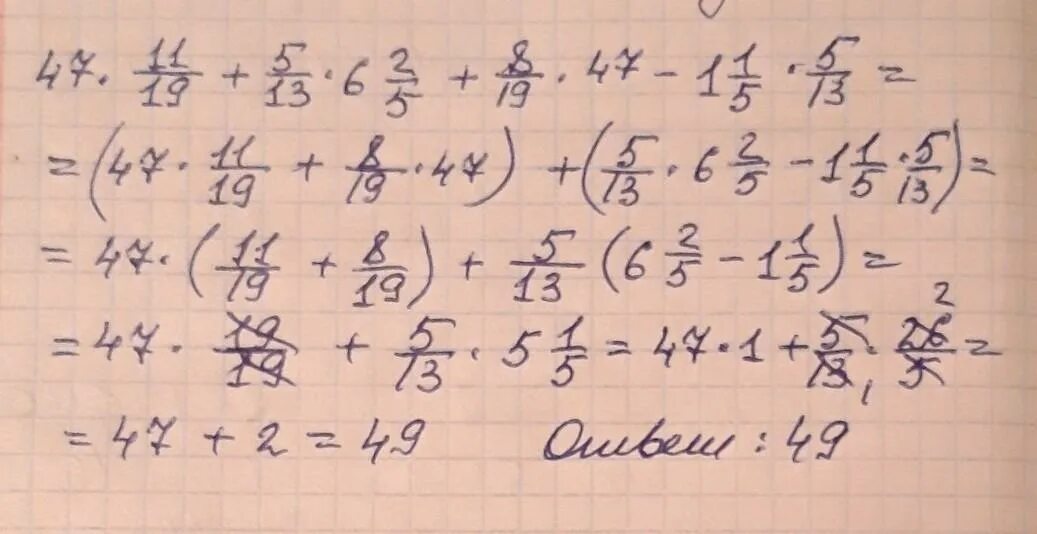 47 · 11/19 + 5/13 · 6 2/5 + 8/19 · 47 - 1 1/5 · 5/13 =
= (47 · 11/19 + 8/19 · 47) + (5/13 · 6 2/5 - 1 1/5 · 5/13) =
= 47 · (11/19 + 8/19) + 5/13 (6 2/5 - 1 1/5) =
= 47 · 19/19 + 5/13 · 5 1/5 = 47 · 1 + 5/13 1 · 26/5 2 =
= 47 + 2 = 49 Ответ : 49